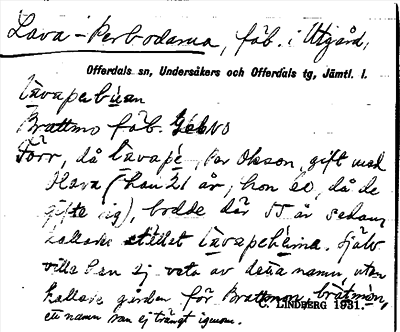 Lava-Perbodarna, fäb. i Utgård,
Offerdals sn, Undersåkers och Offerdals tg, Jämtl. l.
Brattmo fäb.
Förr, då Lavape, Per Olsson, gift med
(han 21 år, hon 60, då de
gifte sig), bodde där 55 år sedan,
kallades stället. Själv
ville han ej veta av detta namn, utan
kallade gården för Brattmon, bråtmon,
C. LINDBERG 1931.
ett namn som ej trängt igenom.